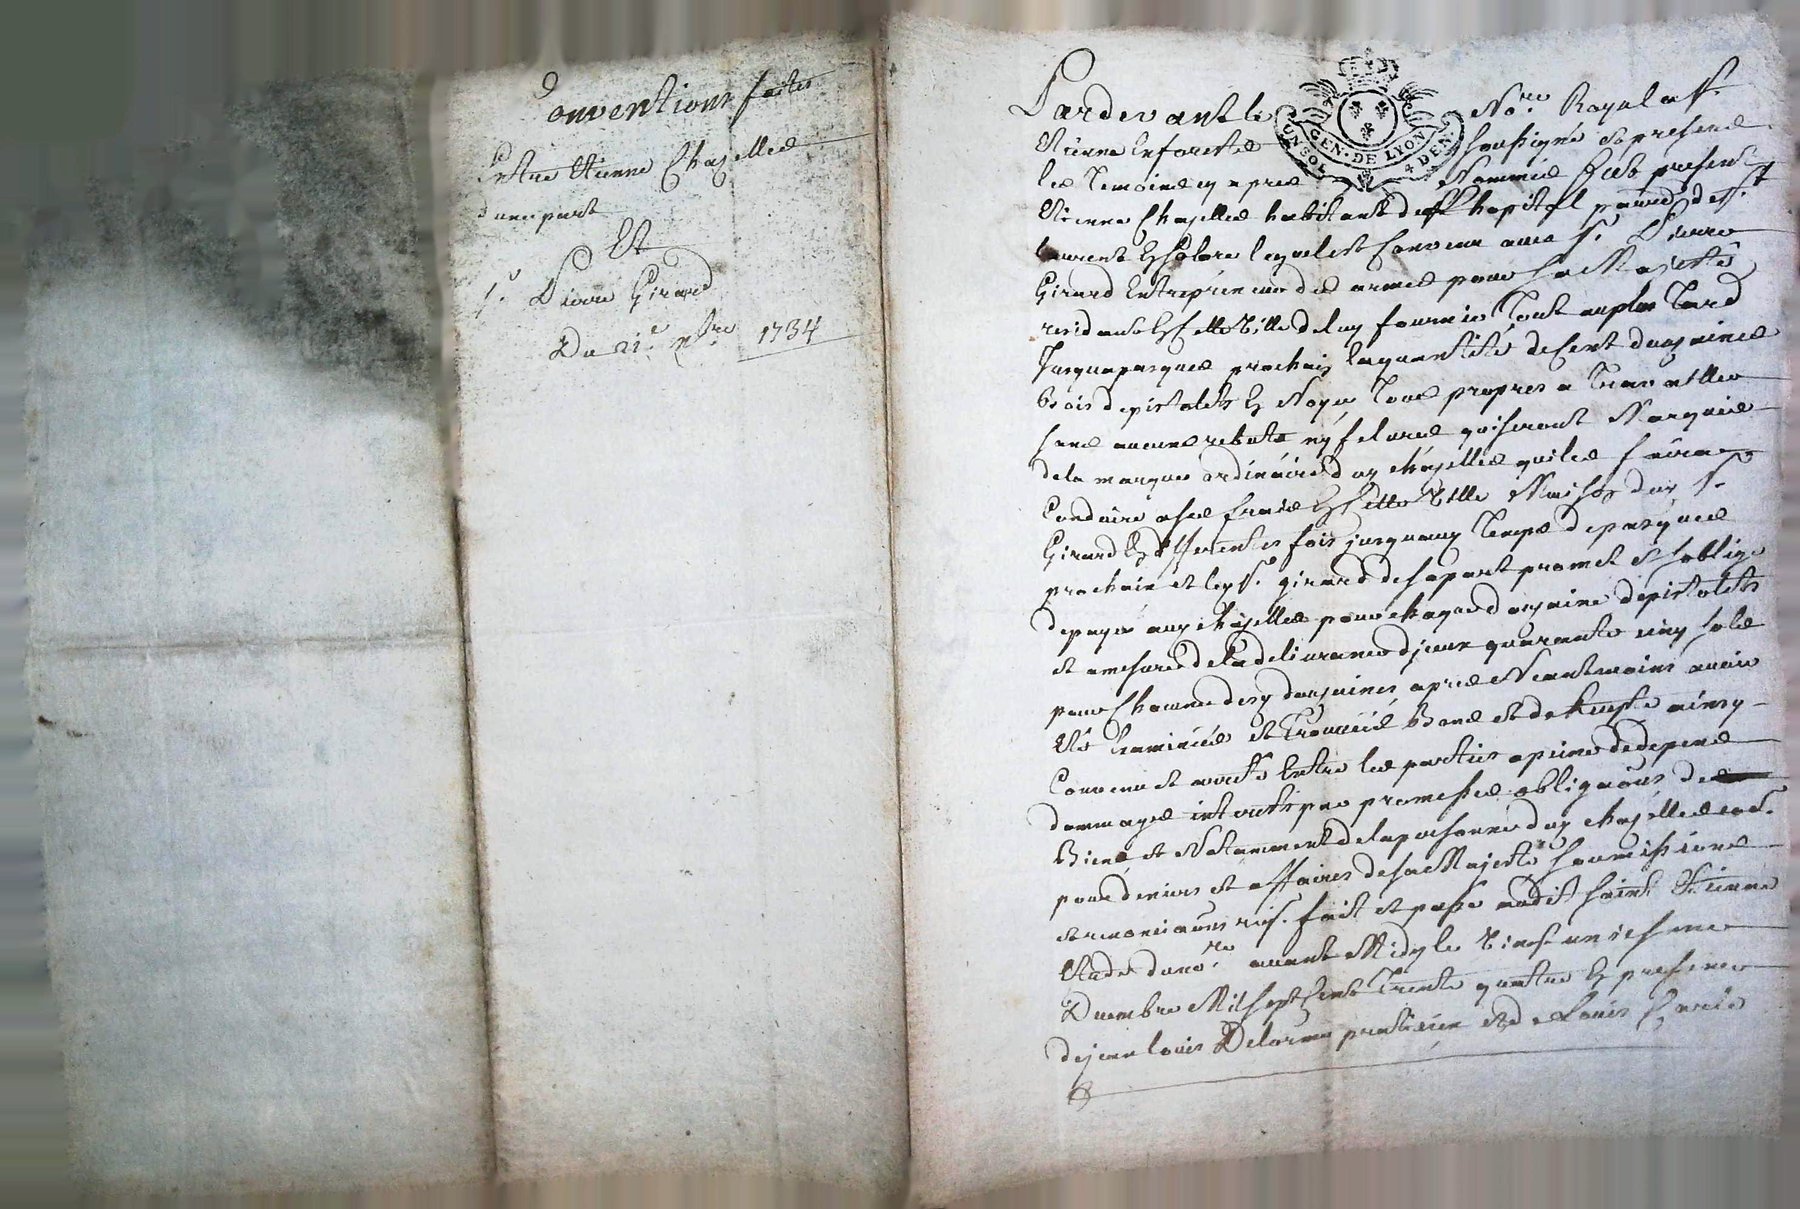 Conventions faites
Entre Etienne Chazelles
d'une part
Et
Sr. Pierre Girard
Du 21e. xbre 1734
GEN. DE LYON
UN SOL 4 DEN
Pardevant le Nore Royal a St.
Etienne En forest soussigné et presens
les temoins cy apres Nommés fut present
Etienne Chazelles habitant de l'hopital parroisse de St
laurent En solore lequel est convenu avec Sr. Pierre
Girard Entrepreneur des armes pour sa Majesté
residant En cette Ville de luy fournir tout au plus tard
Jusqua pasques prochain la quantité de cent douzaines
bois de pistolets En Noyer tous propres a travailler
sans aucuns rebuts ny felures qui seront Marqués
de la marque ordinaire dud chazelles qu'il fera
Conduire a ses frais En cette Ville Maison dud Sr.
Girard En differentes fois jusquaux temps de pasques
prochain et led Sr. girard de sa part promet et s'oblige
de payer aud chazelles pour chaque douzaine de pistolets
et a mesure de la delivrance d'jceux quarante cinq sols
pour Chacune desd douzaines apres Neantmoins avoir
Eté Examinées et trouvées bons et de Receptte ainsy
Convenu et arreté Entre les parties a peine de depens
dommages interets par promesses obligãons de
Biens et Notamment de la personne dud chazelles
pour deniers et affaires de sa Majesté soumissions
et renonciãons fait et passé audit saint Etienne
Etude du nore avant Midy le Vingt unieme
Decembre Mil sept Cent Trente quatre En presence
de jean louis Delorme praticien et de Louis